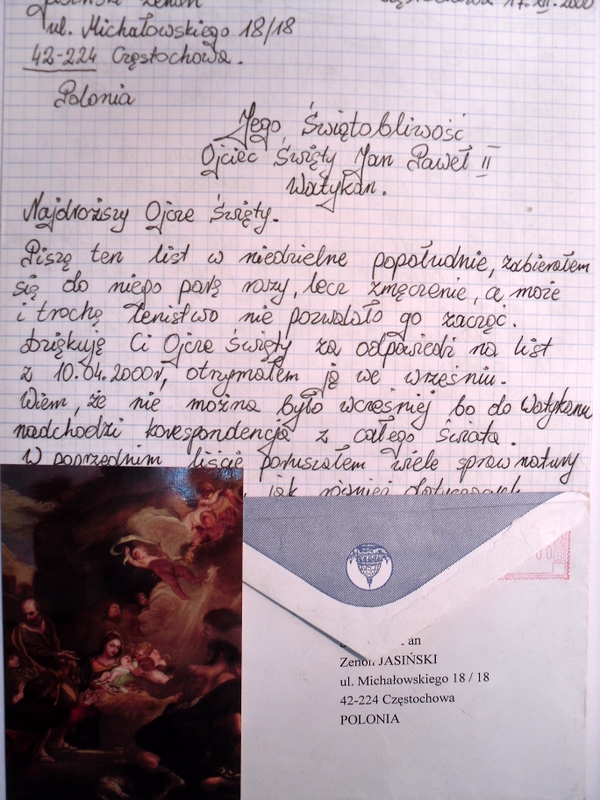 Jasiński Zenon
Częstochowa 17.XII.2000
ul. Michałowskiego 18/18
42-224 Częstochowa.
Polonia
Jego Świętobliwość
Ojciec Święty Jan Paweł II
Watykan.
Najdroższy Ojcze Święty.
Piszę ten list w niedzielne popołudnie, zabierałem
się do niego parę razy, lecz zmęczenie, a może
i trochę lenistwo nie pozwalało go zacząć.
Dziękuję Ci Ojcze Święty za odpowiedź na list
z 10.04.2000r, otrzymałem ją we wrześniu.
Wiem, że nie można było wcześniej bo do Watykanu
nadchodzi korespondencja z całego świata.
W poprzednim liście poruszałem wiele spraw natury
jak również dotyczących
an
Zenon JASIŃSKI
ul. Michałowskiego 18 / 18
42-224 Częstochowa
POLONIA